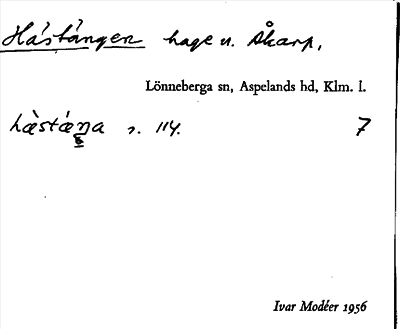 Hästängen hage u. Åkarp,
Lönneberga sn, Aspelands hd, Klm. l.
hæ̀stǽŋa s. 114. 7
Ivar Modéer 1956